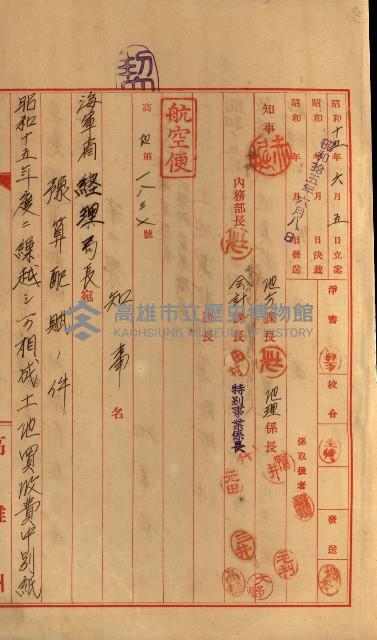 昭和十五年六月五日立案
昭和 年 月 日決裁
昭和 年 月 日發送
昭和拾五年六月八日
淨書
校合
發送
係取扱者
知事
內務部長
地方課長
會計課長
地理係長
特別事業係長
元田
毛利
航空便
契
高地第一八三〆號
知事名
海軍省經理局長宛
豫算配賦ノ件
昭和十五年度ニ繰越シ可相成土地買收費中別紙
高雄州
高雄市立歷史博物館
KAOHSIUNG MUSEUM OF HISTORY